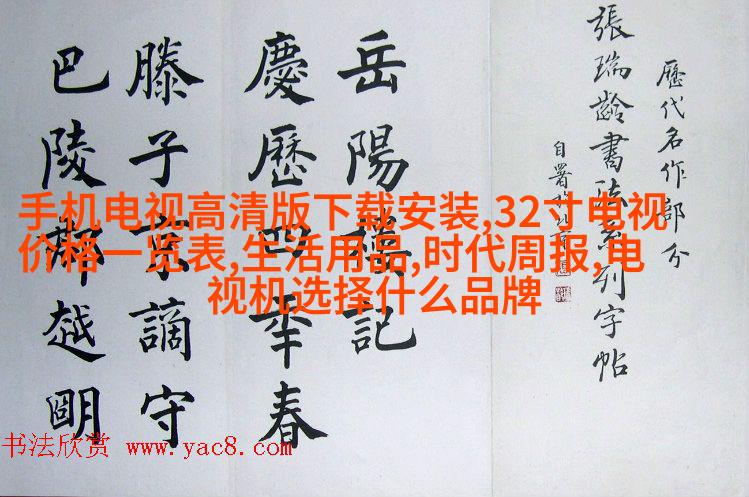 歷代名作部分
張瑞齡書法系列字帖
岳陽樓記
慶歷四年春
滕子京謫守
巴陵郡越明
手机电视高清版下载安装,32寸电视
价格一览表,生活用品,时代周报,电
视机选择什么品牌
书法欣赏 www.yac8.com